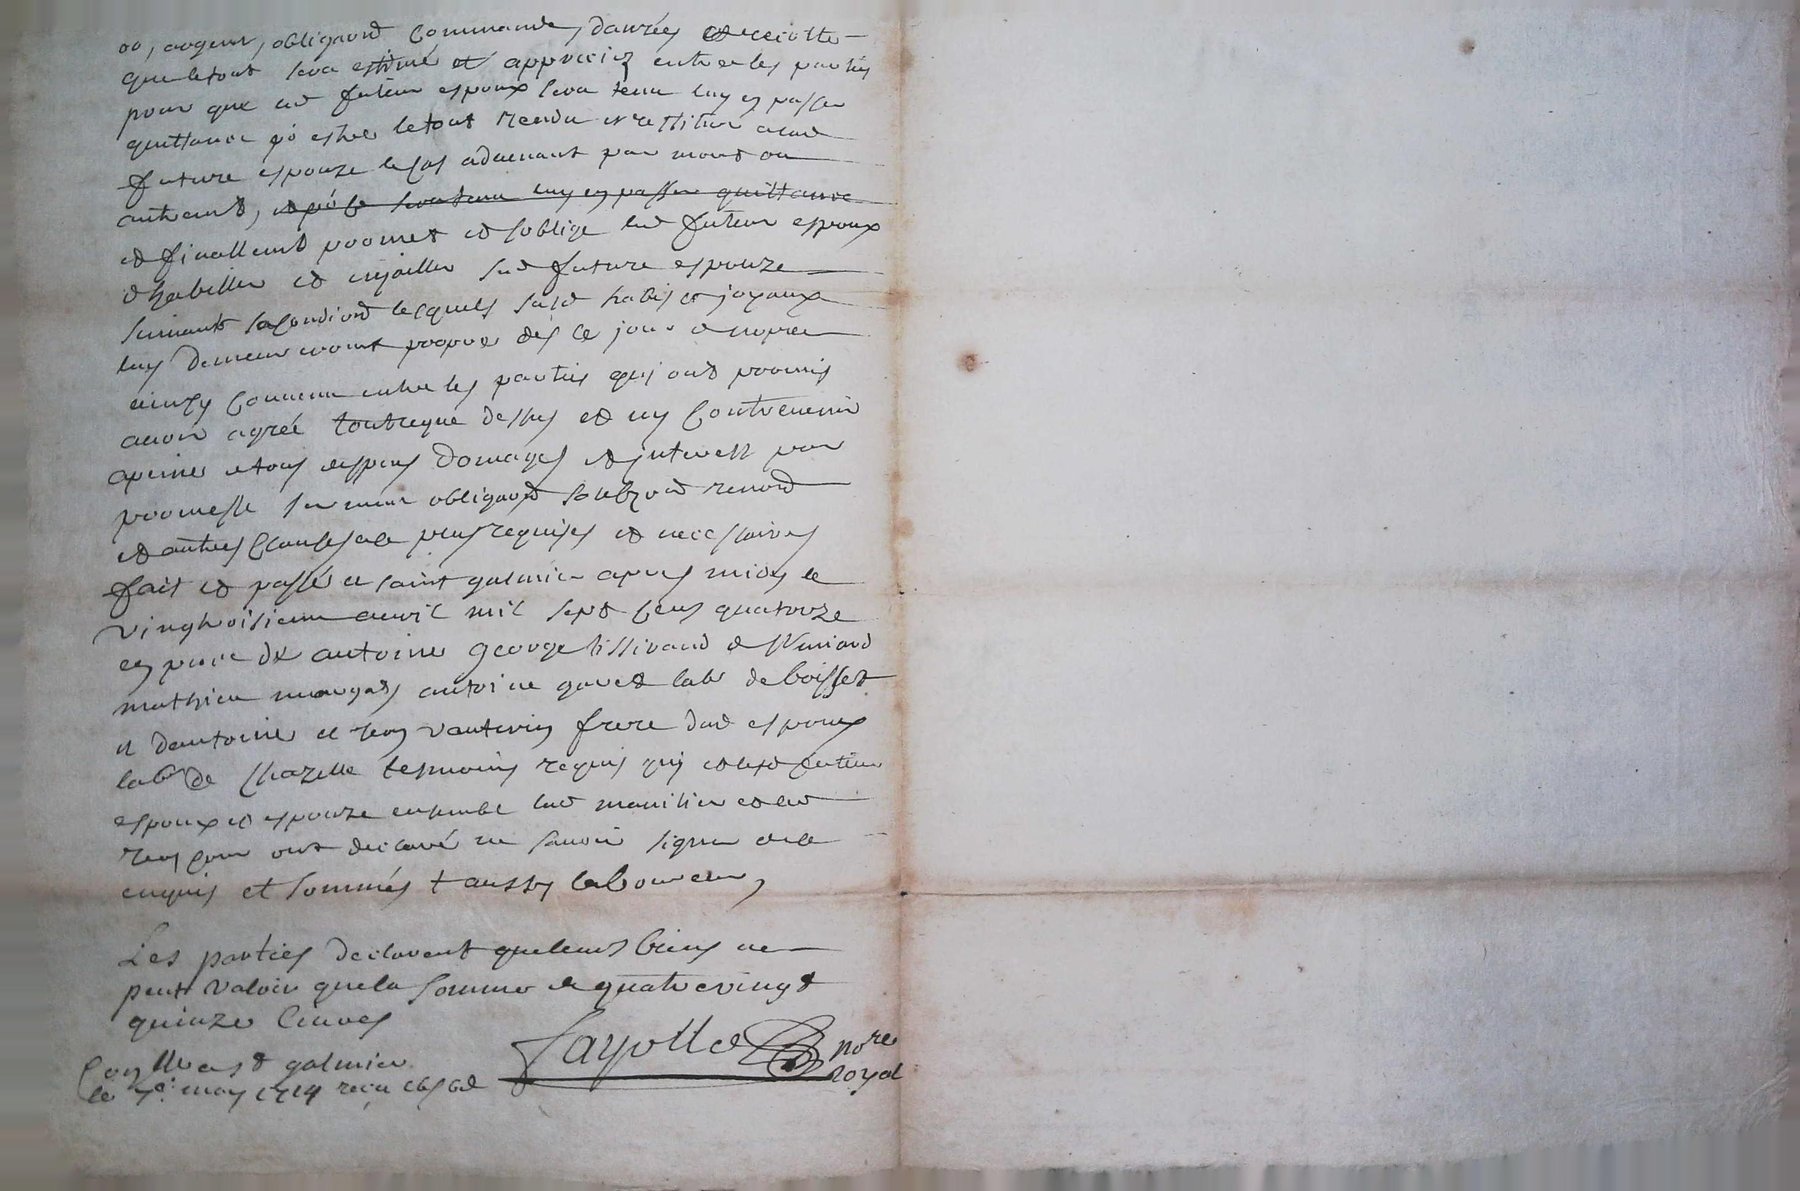 or, argent, obligaond commande, danrées et recolte
que le tout sera estimé et apprecié entre les parties
pour que led futeur espoux sera tenu luy en passer
quittance po estre le tout rendu et restitué a lad
future espouze le cas advenant par mort ou
autremt, et po ce sera tenu luy en passer quittance
et finallemt promet et soblige led futeur espoux
dhabiller et enjoailler sad future espouze
suivant sa condiond lesquels susd habis et joyaux
luy demeureront propres dès ce jour
ainsy convenu entre les parties quy ont promis
avoir agréé tout ce que dessus et ny contrevenir
a peine de tous despens domages et interest par
promesse serment obligaond soubzond renond
et autres clauses a ce plus requises et necessaires
fait et passé a saint galmier apres midy le
vingtroisieme avril mil sept cens quatorze
en prnce de antoine george tissirand de
mathieu antoine labr de boisset
et dantoine et vauterin frere dud espoux
labr de Chazelle tesmoins requis quy et lesd futeur
espoux et espouze ensemble led et led
ont declaré ne savoir signer de ce
enquis et sommés + aussy laboureur,
Les parties declarent que leurs biens ne
peut valoir que la somme de quatre vingt
quinze livres
Fayolle nore
royal
Conllé a st galmier
le 7e may 1714 reçu